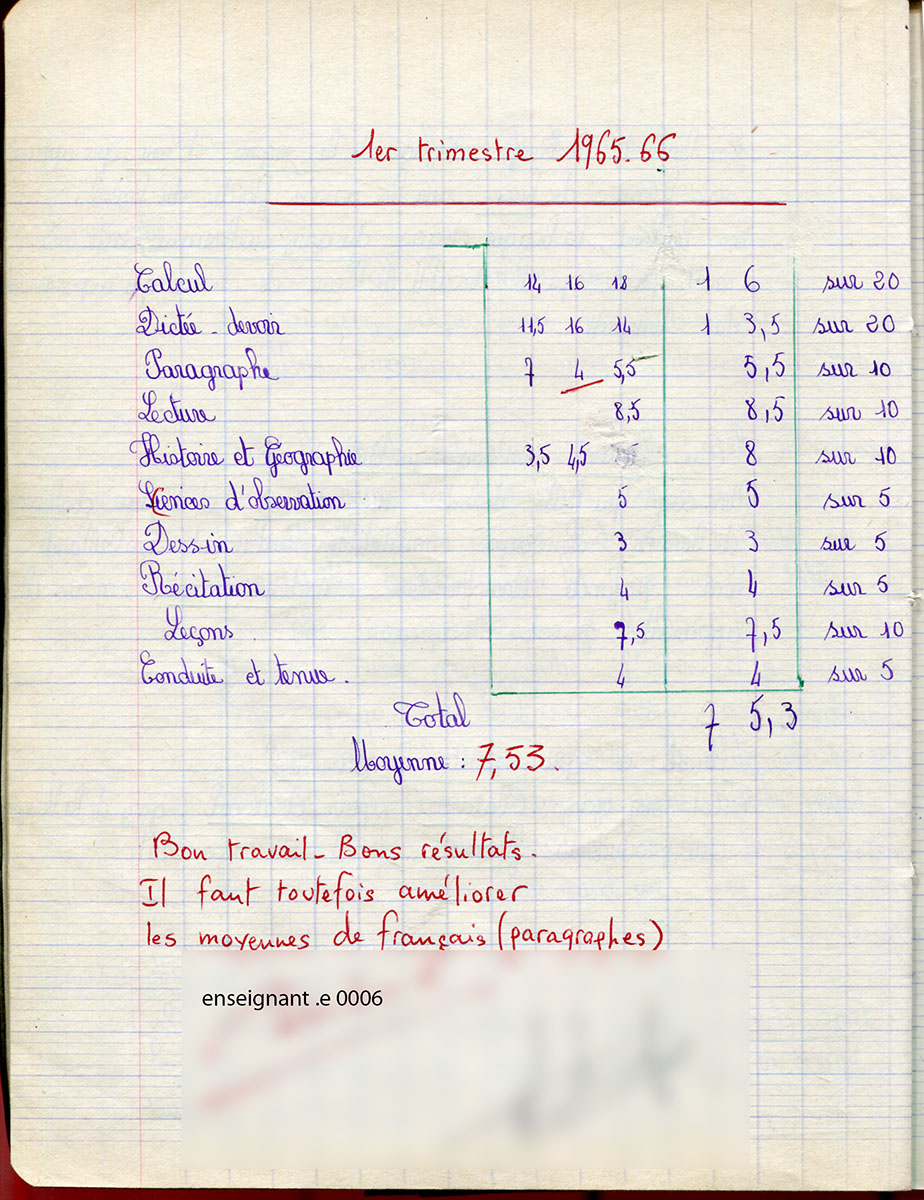 1er trimestre 1965.66
Calcul 14 16 18 1 6 sur 20
Dictée - devoir 11,5 16 14 1 3,5 sur 20
Paragraphe 7 4 5,5 5,5 sur 10
Lecture 8,5 8,5 sur 10
Histoire et Géographie 3,5 4,5 8 sur 10
Sciences d'observation 5 5 sur 5
Dessin 3 3 sur 5
Récitation 4 4 sur 5
Leçons 7,5 7,5 sur 10
Conduite et tenue. 4 4 sur 5
Total 7 5,3
Moyenne : 7,53.
Bon travail - Bons résultats.
Il faut toutefois améliorer
les moyennes de français (paragraphes)
enseignant .e 0006